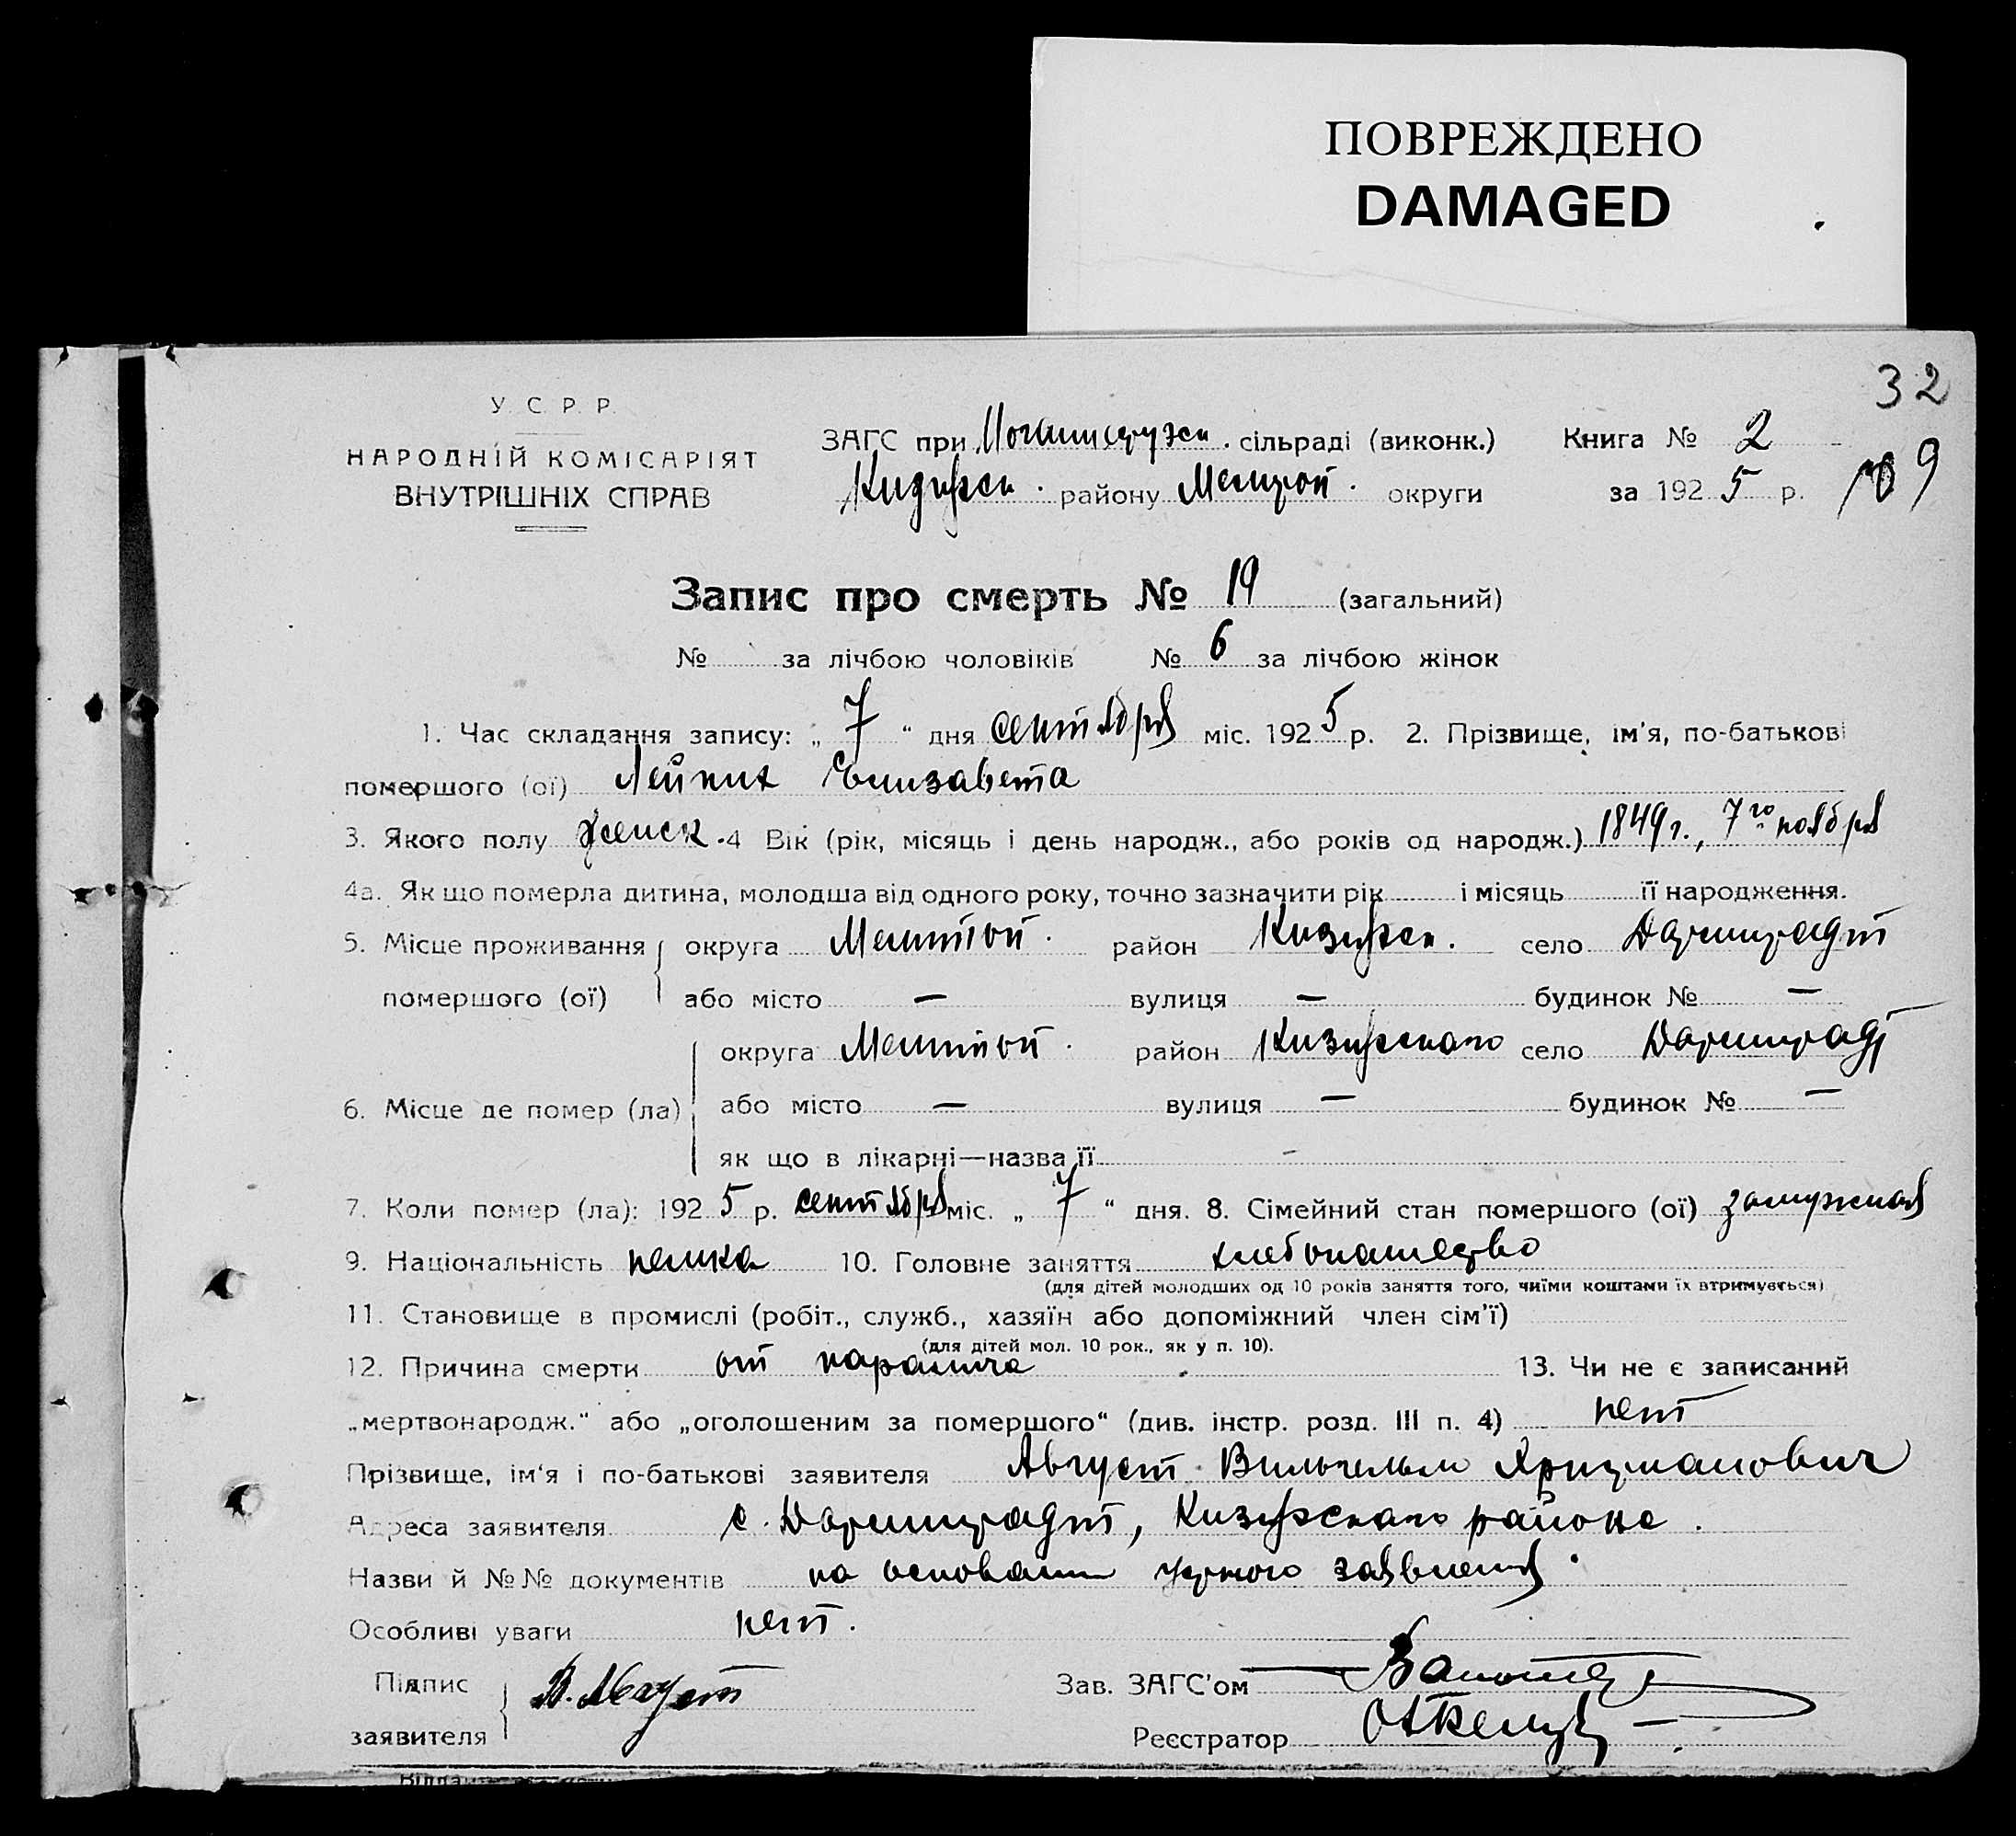 ПОВРЕЖДЕНО
DAMAGED
32
У. С. Р. Р.
НАРОДНІЙ КОМІСАРІЯТ
ВНУТРІШНІХ СПРАВ
ЗАГС при сільраді (виконк.) Книга № 2
району Мелитоп. округи за 192 5 р. 109
Запис про смерть № 19 (загальний)
№ за лічбою чоловіків № 6 за лічбою жінок
1. Час складання запису: „ 7 “ дня сентября міс. 192 5 р. 2. Прізвище, ім'я, по-батькові
помершого (ої) Елизавета
3. Якого полу женск. 4 Вік (рік, місяць і день народж., або років од народж.) 1849 г., 7го ноября
4а. Як що померла дитина, молодша від одного року, точно зазначити рік і місяць її народження.
5. Місце проживання округа Мелитоп. район село Дармштадт
помершого (ої) або місто — вулиця — будинок № —
округа Мелитоп. район село Дармштадт
6. Місце де помер (ла) або місто — вулиця — будинок № —
як що в лікарні—назва її –
7. Коли помер (ла): 192 5 р. сентября міс. „ 7 “ дня. 8. Сімейний стан помершого (ої) замужная
9. Національність немка 10. Головне заняття хлебопашество
(для дітей молодших од 10 років заняття того, чиїми коштами їх втримується)
11. Становище в промислі (робіт., служб., хазяїн або допоміжний член сім'ї)
(для дітей мол. 10 рок., як у п. 10).
12. Причина смерти от паралича 13. Чи не є записаний
„мертвонародж.“ або „оголошеним за помершого“ (див. інстр. розд. III п. 4) нет
Прізвище, ім'я і по-батькові заявителя Август Вильгельм
Адреса заявителя с. Дармштадт, района.
Назви й №№ документів на основании устного заявления.
Особливі уваги нет.
Підпис
заявителя В. Август
Зав. ЗАГС'ом
Реєстратор